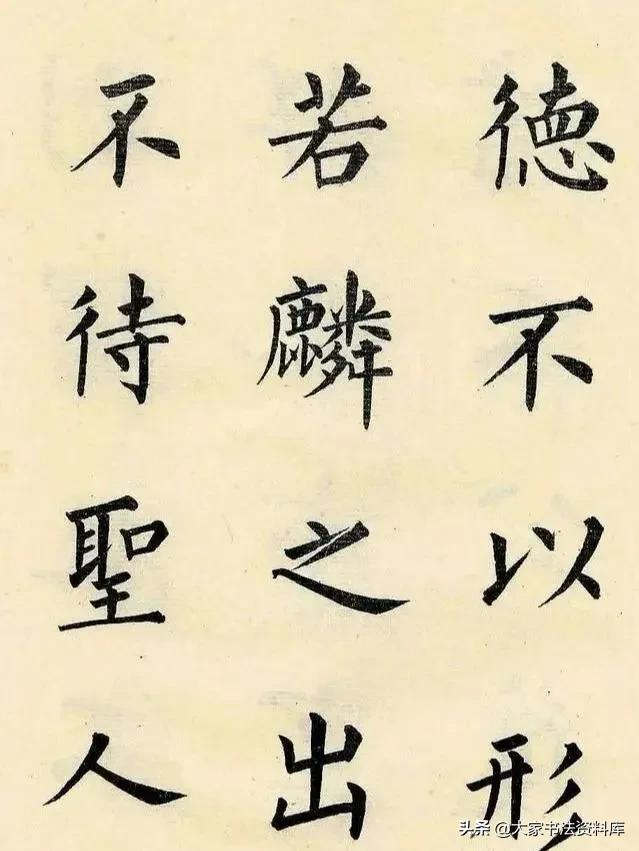 德不以形
若麟之出
不待聖人
头条 @大家书法资料库